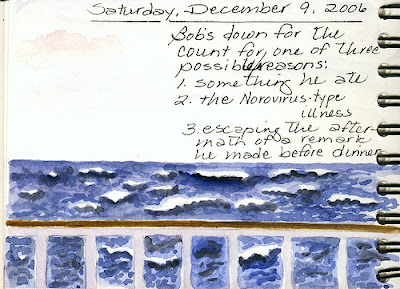 Saturday, December 9, 2006
Bob's down for the
count for one of three
possible reasons:
1. something he ate
2. the Norovirus-type
illness
3. escaping the after-
math of a remark
he made before dinner